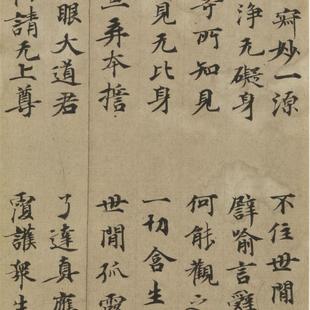 寂妙一源 不住世間
淨无礙身 譬喻言
所知見 何能觀之
見无比身 一切含生
弃本誓 世間孤露
眼大道君 了達真應
請无上尊 覆護衆生